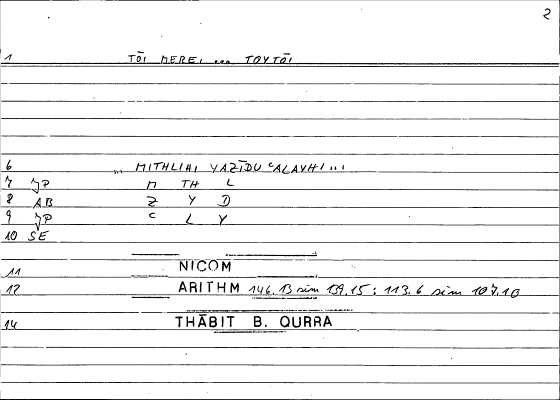 2
1 TŌI MEREI ... TOYTŌI
6 ... MITHLIHI YAZĪDU ʿALAYHI ...
7 JP M TH L
8 AB Z Y D
9 JP ʿ L Y
10 SE
11 NICOM
12 ARITHM 146.13 sim 139.15; 113.6 sim 107.10
14 THĀBIT B. QURRA